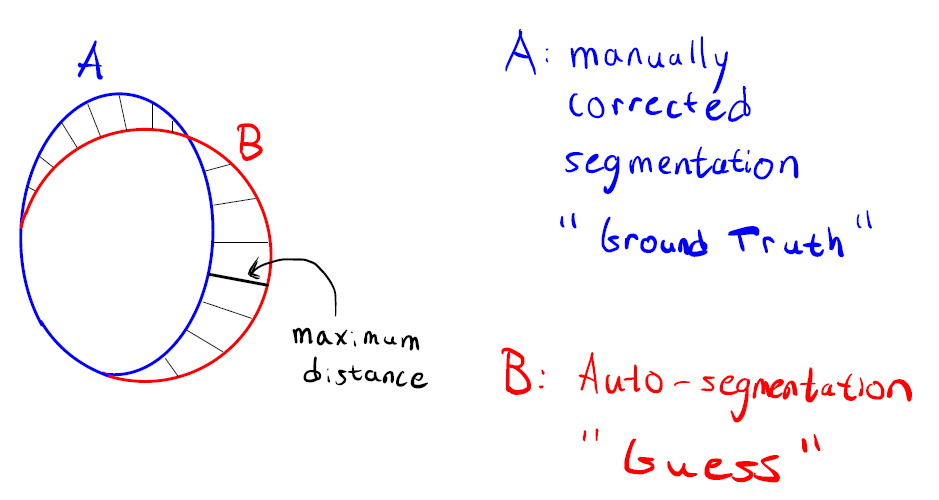 A
B
maximum
distance
A: manually
corrected
segmentation
"Ground Truth"
B: Auto-segmentation
"Guess"